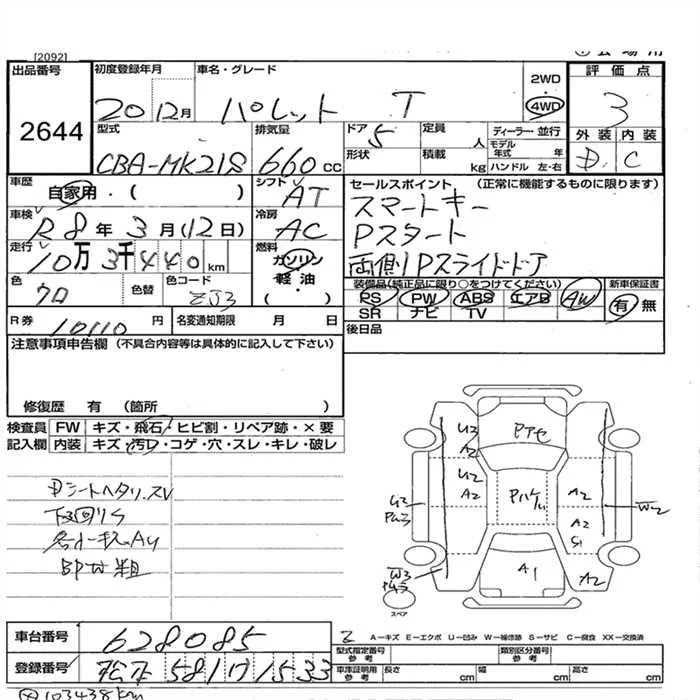 [2092]
出品番号 初度登録年月 車名・グレード 2WD 評価点
2644 20 12月 パレット T 4WD 3
型式 排気量 ドア 定員 ディーラー 並行 外装 内装
CBA-MK21S 660 cc 5 人 モデル年式 年式 D C
形状 積載 kg ハンドル 左・右
車歴 自家用・( ) シフト AT セールスポイント (正常に機能するものに限ります)
車検 R8年3月(12日) 冷房 AC スマートキー
Pスタート
走行 10万3千440km 燃料 ガソリン・軽油・( ) 両側Pスライドドア
色 クロ 色替 色コード ZJ3 装備品(純正品に限り○をつけてください) 新車保証書
PS PW ABS エアB AW 有 無
SR ナビ TV
R券 10110円 名変通知期限 月 日 後日品
注意事項申告欄 (不具合内容等は具体的に記入して下さい)
修復歴 有 (箇所 )
検査員 FW キズ・飛石・ヒビ割・リペア跡・×要
記入欄 内装 キズ・汚れ・コゲ・穴・スレ・キレ・破レ
Dシートヘタリ.スレ
下回りS
U3 A2 Pアセ
U2 A2 A2
U3 A2 W2
S1
W3 A1 A2
スペア
A－キズ E－エクボ U－凹み W－補修跡 S－サビ C－腐食 XX－交換済
車台番号 628085 型式指定番号 参考 類別区分番号 参考
登録番号 松本 581 ワ 1533 車庫証明用 参考 長さ cm 幅 cm 高さ cm
103438km